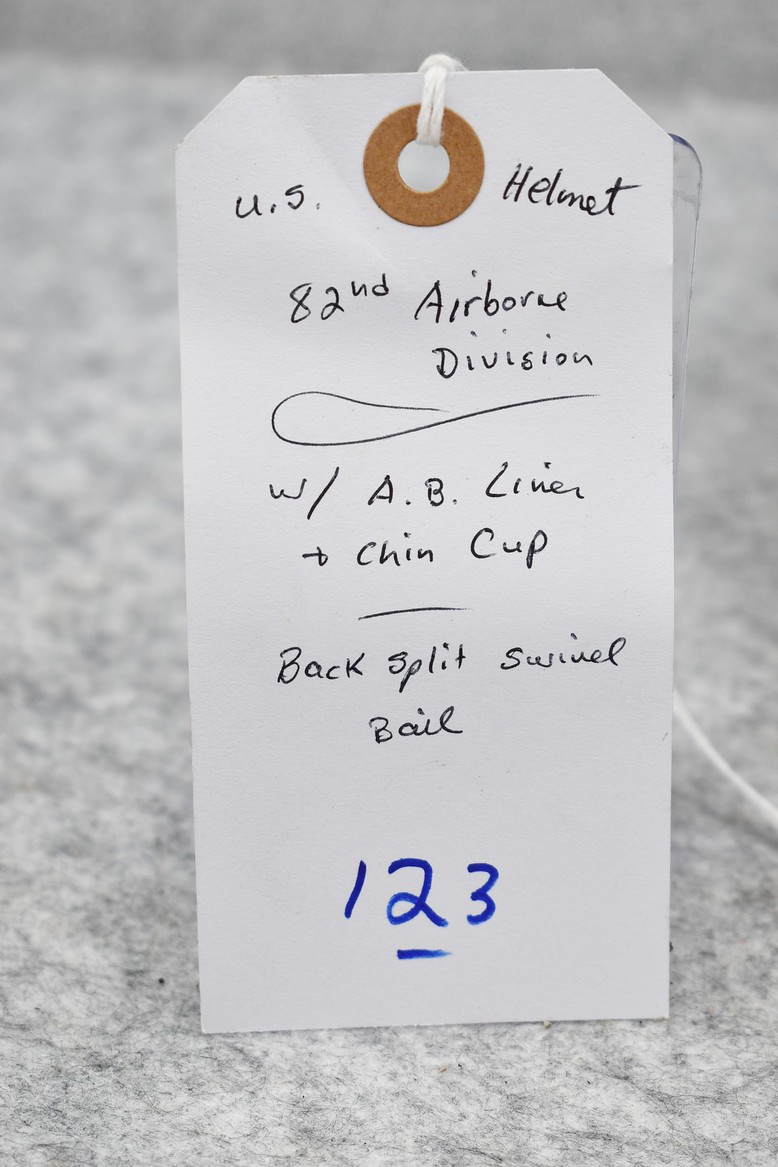 U.S. Helmet
82nd Airborne
Division
w/ A.B. Liner
+ Chin Cup
Back split swivel
Bail
123